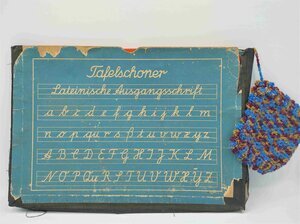 Tafelschoner
Lateinische Ausgangsschrift
a b c d e f g h i j k l m
n o p qu r s ß t u v w x y z
A B C D E F G H I J K L M
N O P Qu R S T U V W X Y Z